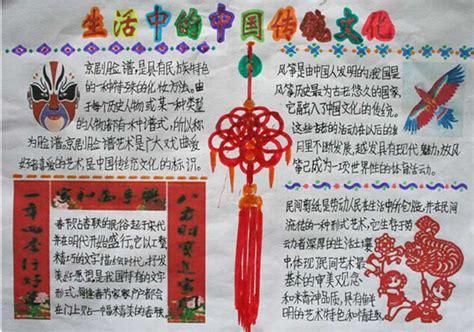 生活中的中国传统文化
京剧脸谱,是具有民族特色
的一种特殊的化妆方法。由
于每个历史人物或某一种类型
的人物都有一种谱式,所以称
为脸谱,京剧脸谱艺术是广大戏曲爱
好者喜爱的艺术是中国传统文化的标识。
风筝是由中国人发明的,我国是
风筝历史最为古老悠久的国家,
它融入了中国文化的传统。
这些古老的活动在以后的岁
月里不断发展,越发具有现代魅力,放风
筝已成为一项世界性的体育活动。
一年四季行好
八方财宝进家
春节贴春联的民俗起于宋代
并在明代开始盛行,它以工整
精巧的文字描绘时代,抒发
美好愿望,是我国特有的文字
形式。每逢春节家家户户都会
在门上贴上一幅春联
民间剪纸是劳动人民在生活中所创造,并在民间
流传的一种形式艺术,它生寄于劳
动者深厚的生活土壤
中,体现民间艺术最
基本的审美观念
和精神品质,具有鲜明
的艺术特色和情趣。